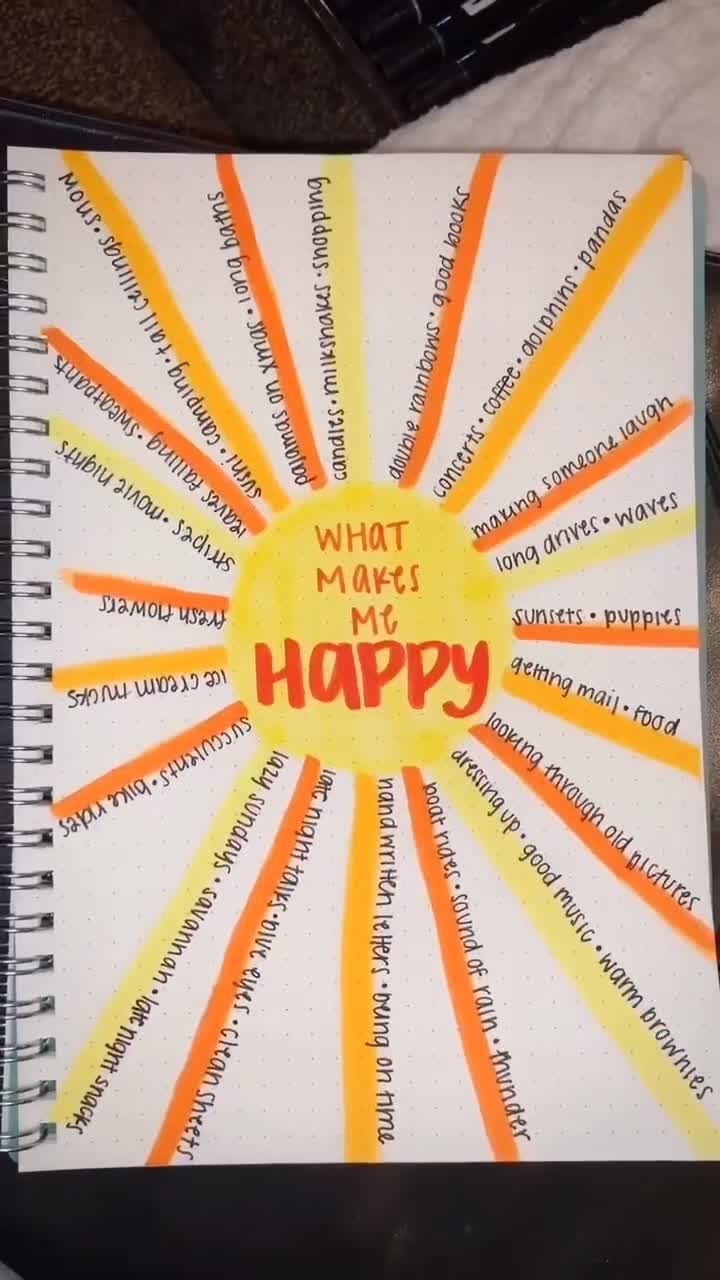 WHAT
MAKES
ME
HAPPY
candles • milkshakes • shopping
double rainbows • good books
concerts • coffee • dolphins • pandas
making someone laugh
long drives • waves
sunsets • puppies
getting mail • food
looking through old pictures
dressing up • good music • warm brownies
boat rides • sound of rain • thunder
handwritten letters • being on time
late night talks • blue eyes • clean sheets
lazy sundays • savannah • late night snacks
succulents • bike rides
ice cream trucks
fresh flowers
stripes • movie nights
leaves falling • sweatpants
sushi • camping • tall ceilings • snow
pajamas on xmas • long baths